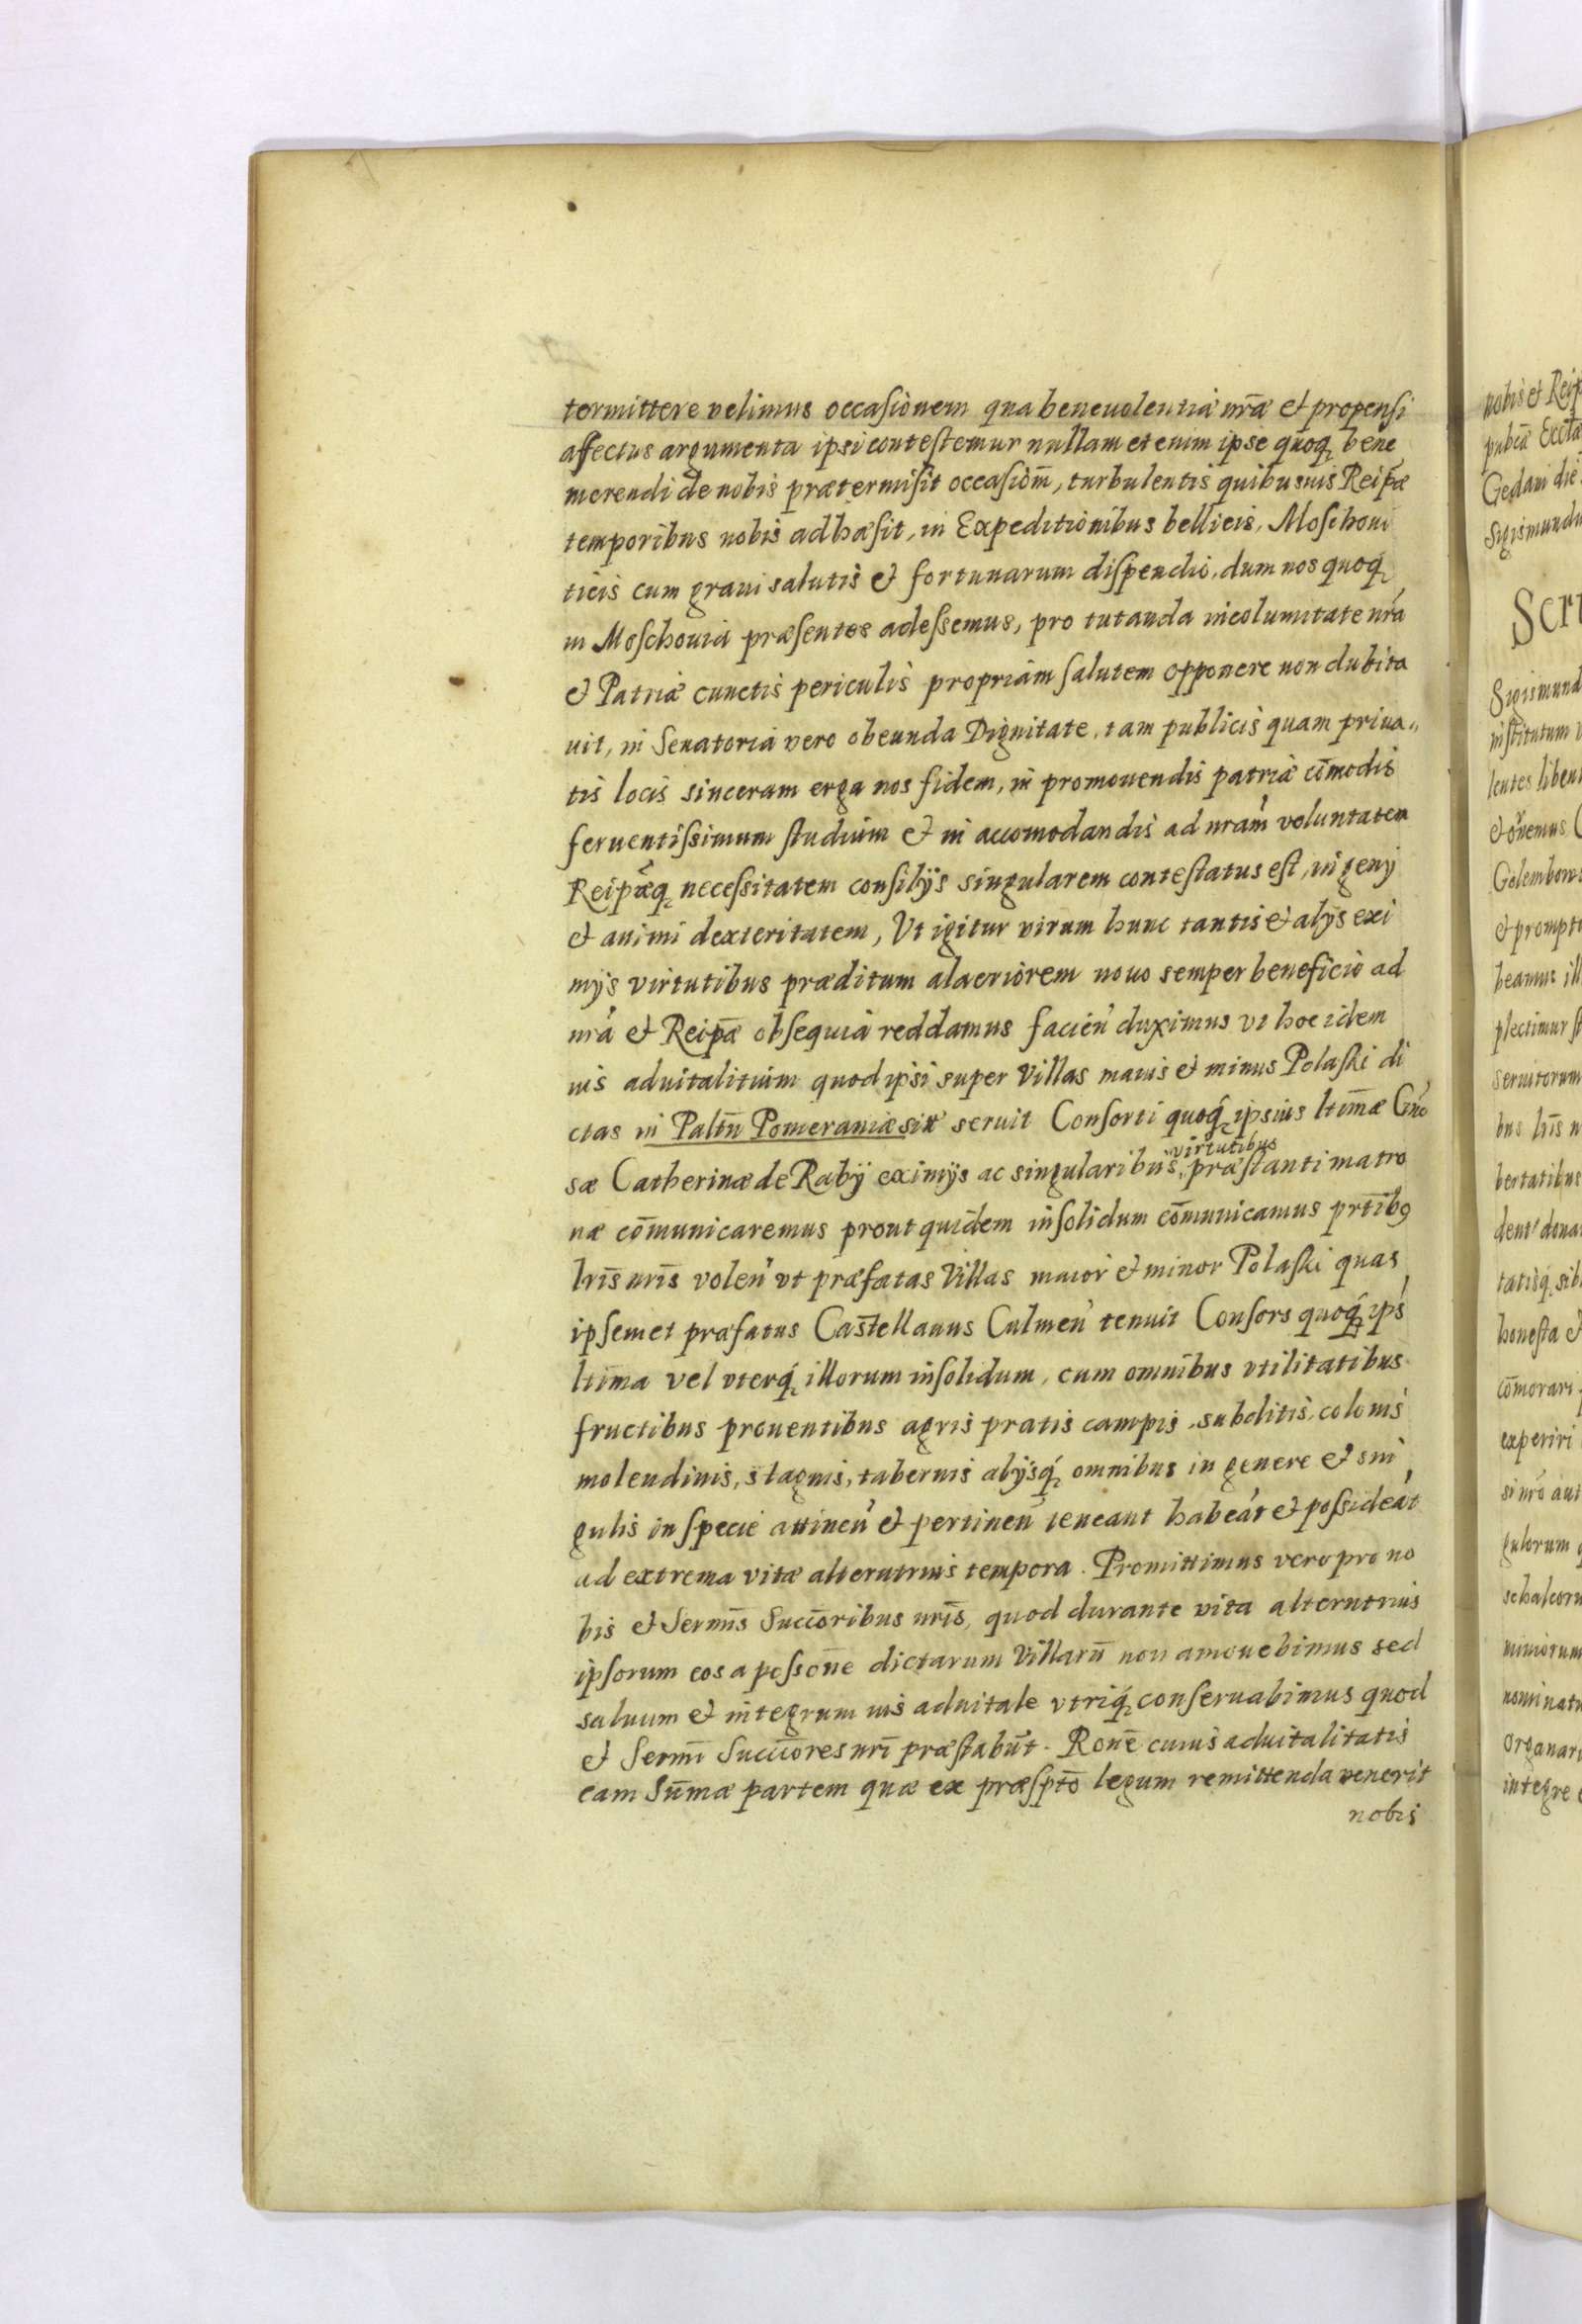 termittere velimus occasionem qua beneuolentiæ nr̃æ et propensi
affectus argumenta ipsi contestemur nullam etenim ipse quoq bene
merendi de nobis prætermisit occasiõm, turbulentis quibusuis Reipæ
temporibus nobis adhæsit, in Expeditionibus bellicis, Moschoui
ticis cum graui salutis et fortunarum dispendio, dum nos quoq
in Moschouia præsentes adessemus, pro tutanda incolumitate nr̃a
et Patriæ cunctis periculis propriam salutem opponere non dubita
uit, in Senatoria vero obeunda Dignitate, tam publicis quam priua„
tis locis sinceram erga nos fidem, in promouendis patriæ cõmodis
feruentissimum studium et in accomodandis ad nram voluntatem
Reipæq necessitatem consilijs singularem contestatus est, ingenij
et animi dexteritatem, Vt igitur virum hunc tantis et alijs exi
mijs virtutibus præditum alacriorem nouo semper beneficio ad
nr̃a et Reipæ obsequia reddamus facien duximus vt hoc idem
ius aduitalitium quod ipsi super Villas maius et minus Polaski di
ctas in Paltñ Pomeraniæ sit̃ seruit Consorti quoq ipsius ltimæ Gño
sæ Catherinæ de Raby eximijs ac singularibus virtutibus præstanti matro
næ cõmunicaremus prout quidem insolidum cõmunicamus prtib9
lris nris volen vt præfatas Villas maior et minor Polaski quas
ipsemet præfatus Castellanus Culmen tenuit Consors quoq ips
ltima vel vterq illorum insolidum, cum omnibus vtilitatibus
fructibus prouentibus agris pratis campis, subditis, colonis
molendinis, stagnis, tabernis alijsq omnibus in genere et sin
gulis in specie attinen et pertinen teneant habeãt et possideãt
ad extrema vitæ alterutrius tempora. Promittimus vero pro no
bis et Sermis Succoribus nris, quod durante vita alterutrius
ipsorum eos a possone dictarum Villarũ non amouebimus sed
saluum et integrum ius aduitale vtriq conseruabimus quod
et Sermi Succores nri præstabũt. Rone cuius aduitalitatis
eam Sũmæ partem quæ ex præspto legum remittenda venerit
nobis